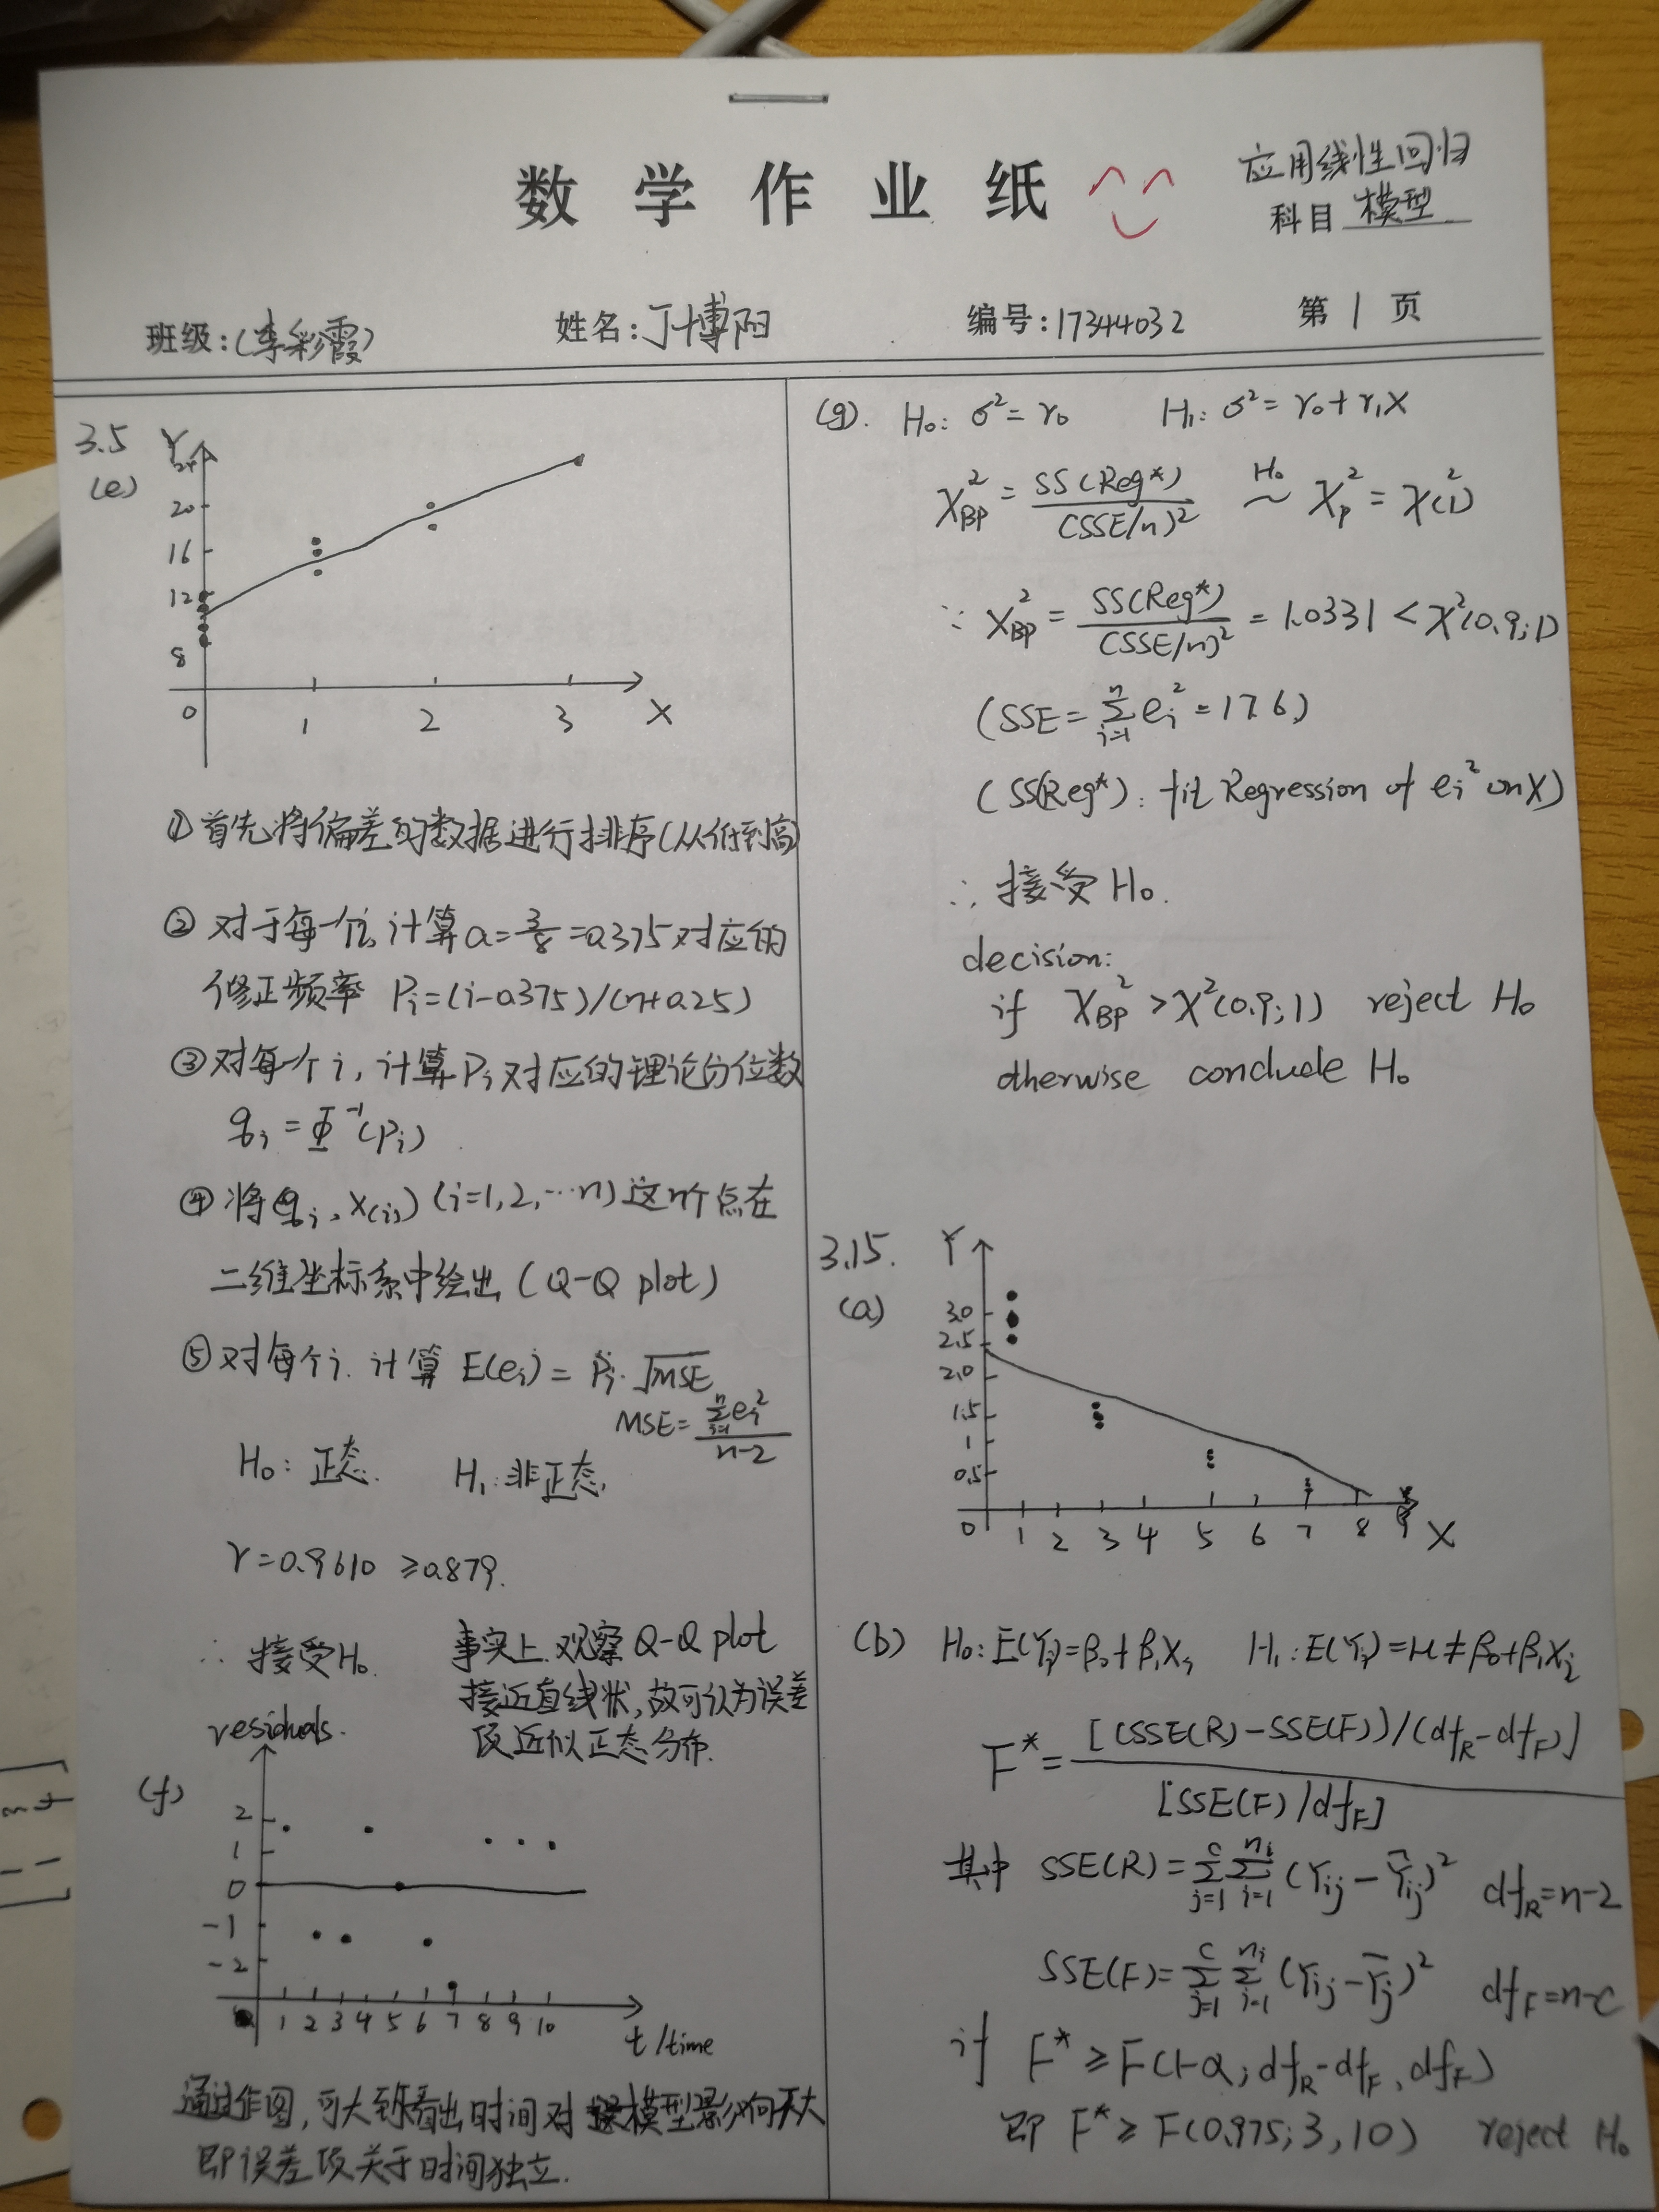 数学作业纸
应用线性回归
科目 模型
班级:(李彩霞)
姓名:丁博阳
编号:17344032
第 1 页
3.5
(e)
Y
24
20
16
12
8
0 1 2 3 X
① 首先将偏差的数据进行排序(从低到高)
② 对于每一个i, 计算 a=3/8=0.375 对应的
修正频率 Pi=(i-0.375)/(n+0.25)
③ 对每一个 i, 计算 Pi 对应的理论分位数
qi = Φ⁻¹(Pi)
④ 将(qi, X(i)) (i=1,2,…n) 这n个点在
二维坐标系中绘出 (Q-Q plot)
⑤ 对每个i. 计算 E(ei) = Pi·√MSE
MSE = Σⁿᵢ₌₁ei²/(n-2)
H₀: 正态. H₁: 非正态,
r=0.9610 ≥0.879.
∴ 接受H₀.
事实上.观察 Q-Q plot
接近直线状,故可认为误差
项近似正态分布.
(f)
residuals.
2
1
0
-1
-2
1 2 3 4 5 6 7 8 9 10
t/time
通过作图,可大致看出时间对模型影响不大
即误差项关于时间独立.
(g). H₀: σ²=r₀ H₁: σ²=r₀+r₁X
X²BP = SS(Reg*)/(SSE/n)² ~(H₀) χ²p = χ²(1)
∵ X²BP = SS(Reg*)/(SSE/n)² = 1.0331 < χ²(0.9;1)
(SSE = Σⁿᵢ₌₁ ei² = 17.6)
(SS(Reg*): fit Regression of ei² on X)
∴ 接受 H₀.
decision:
if X²BP > χ²(0.9;1) reject H₀
otherwise conclude H₀
3.15.
(a)
Y
3.0
2.5
2.0
1.5
1
0.5
0 1 2 3 4 5 6 7 8 9 X
(b) H₀: E(Yi)=β₀+β₁Xi H₁: E(Yi)=μ≠β₀+β₁Xi
F* = [(SSE(R)-SSE(F))/(dfR-dfF)]/[SSE(F)/dfF]
其中 SSE(R) = Σᶜⱼ₌₁ Σⁿⁱᵢ₌₁ (Yij-Ŷij)² dfR=n-2
SSE(F) = Σᶜⱼ₌₁ Σⁿⁱᵢ₌₁ (Yij-Ȳj)² dfF=n-c
if F* ≥ F(1-α; dfR-dfF, dfF)
即 F* ≥ F(0.975; 3, 10) reject H₀